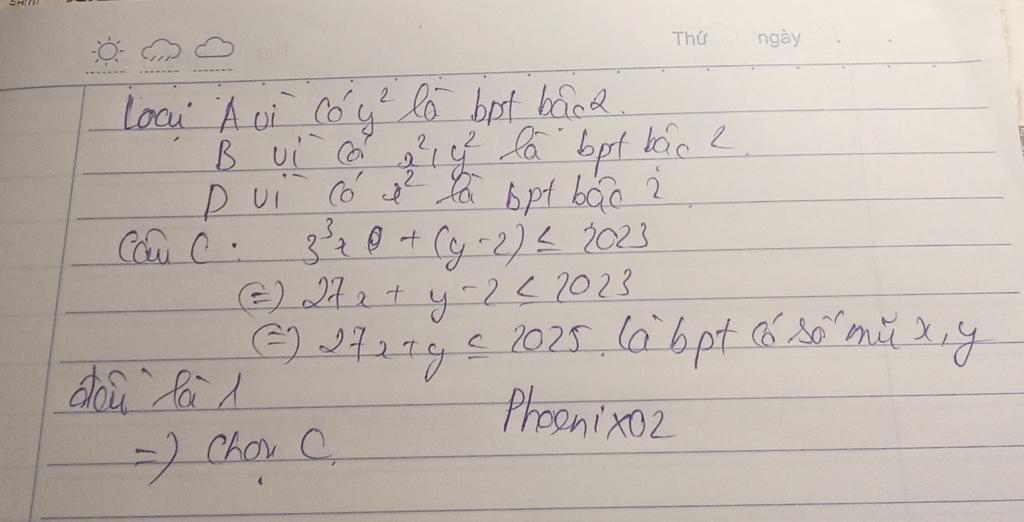 Thứ ngày
Loại A vì có y² là bpt bậc 2.
B vì có x², y² là bpt bậc 2.
D vì có x² là bpt bậc 2
Câu C: 3³x + (y-2) ≤ 2023
(=) 27x + y - 2 ≤ 2023
(=) 27x + y ≤ 2025. là bpt có số mũ x, y
đều là 1
=) Chọn C.
Phoenix02